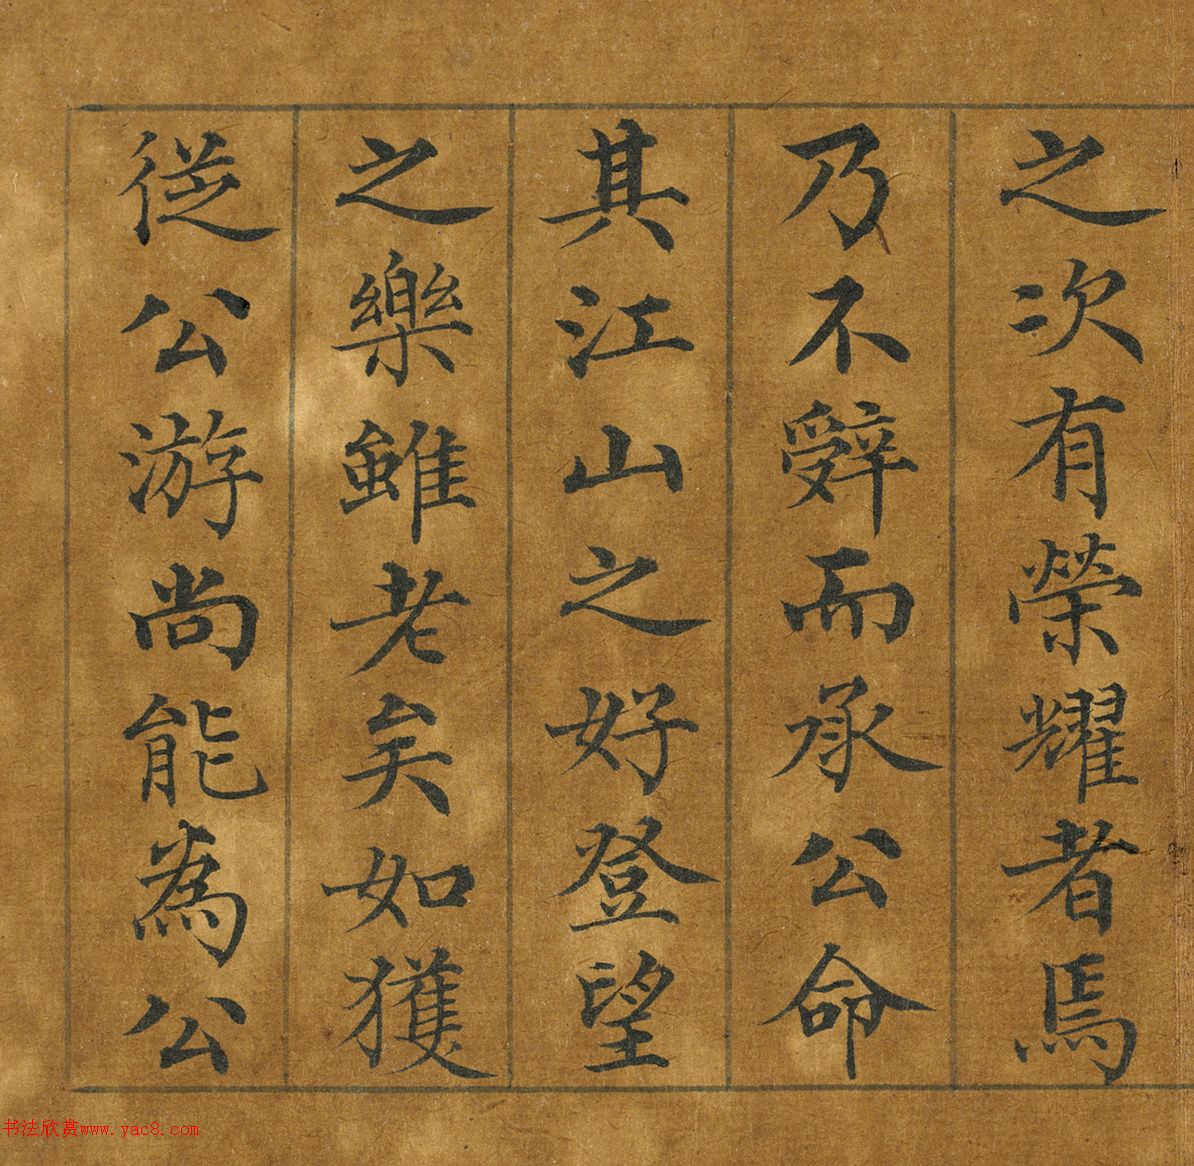 之次有榮耀者焉
乃不辤而承公命
其江山之好登望
之樂雖老矣如獲
從公游尚能為公
书法欣赏www.yac8.com